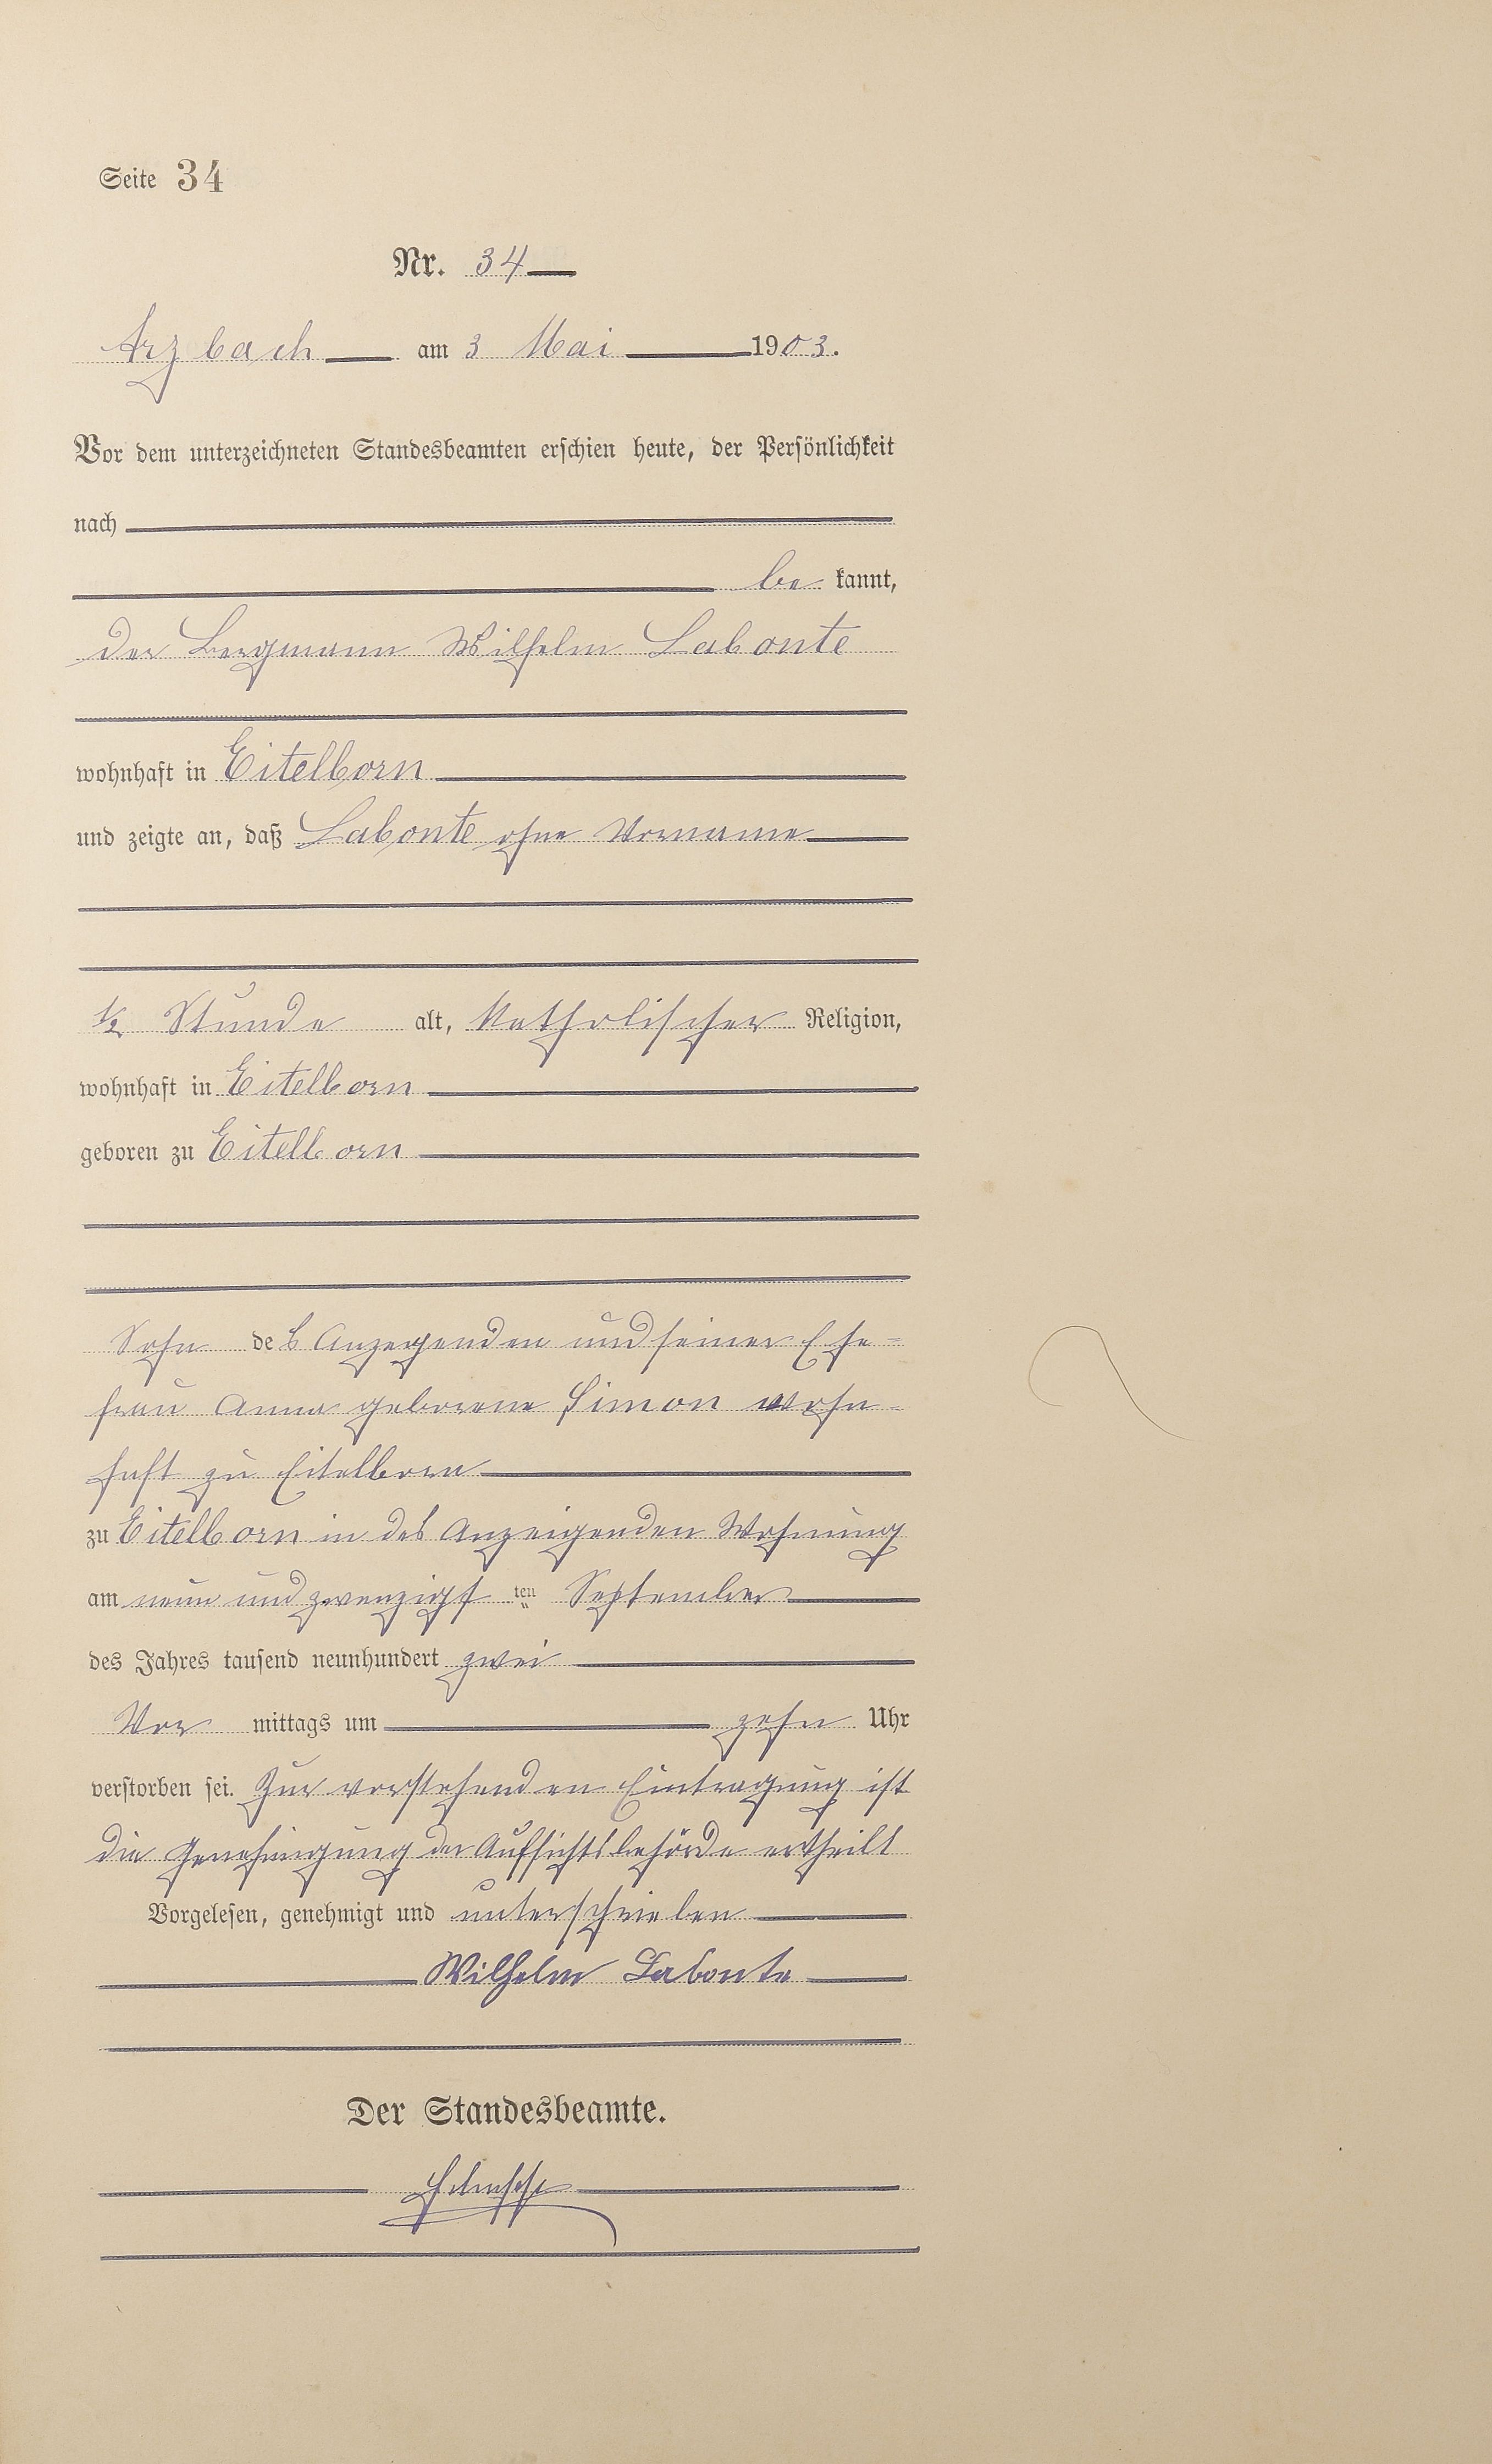 Seite 34
Nr. 34
Arzbach am 3 Mai 1903.
Vor dem unterzeichneten Standesbeamten erschien heute, der Persönlichkeit
nach
be kannt,
der Bergmann Wilhelm Labonte
wohnhaft in Eitelborn
und zeigte an, daß Labonte ohne Vorname
½ Stunde alt, Katholischer Religion,
wohnhaft in Eitelborn
geboren zu Eitelborn
Sohn des Anzegenden und seiner Ehe-
frau Anna geborene Simon wohn-
haft zu Eitelborn
zu Eitelborn in des Anzeigenden Wohnung
am neun und zwanzigst ten September
des Jahres tausend neunhundert zwei
Vor mittags um zehn Uhr
verstorben sei. Zur vorstehenden Eintragung ist
die Genehmigung der Aufsichtsbehörde ertheilt
Vorgelesen, genehmigt und unterschrieben
Wilhelm Labonte
Der Standesbeamte.